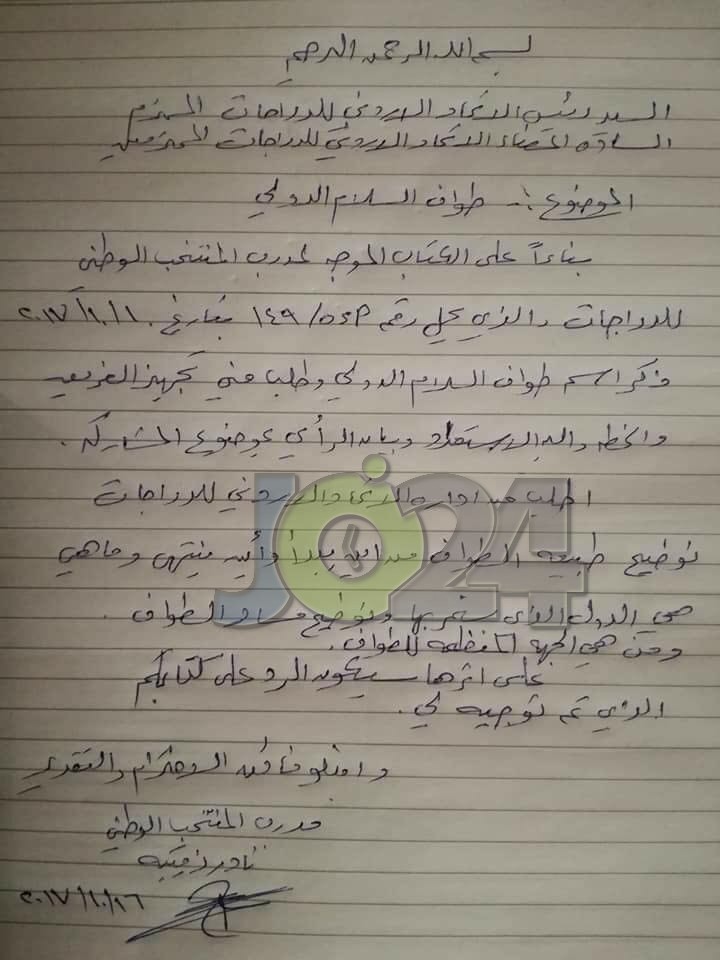 بسم الله الرحمن الرحيم
السيد رئيس الاتحاد الاردني للدراجات المحترم
السادة اعضاء الاتحاد الاردني للدراجات المحترمين
الموضوع :- طواف السلام الدولي
بناءاً على الكتاب الموجه لمدرب المنتخب الوطني
للدراجات والذي يحمل رقم ١٤٩/٥٤٣ بتاريخ ٢٠١٧/١٠/١٠
ذكر اسم طواف السلام الدولي وطلب مني تجهيز الفريق
والخطه والاستعداد وبيان الرأي بموضوع المشاركه .
اطلب من اداره الاتحاد الاردني للدراجات
توضيح طبيعه الطواف من اين يبدأ وأين ينتهي وما هي
هي الدول الذي ستمر بها وتوضيح مسار الطواف .
ومن هي الجهه المنظمه للطواف .
على اثرها سيكون الرد على كتابكم
الذي تم توجيه لي .
الاحترام والتقدير
مدرب المنتخب الوطني
نادر
٢٠١٧/١٠/١٦
JO24